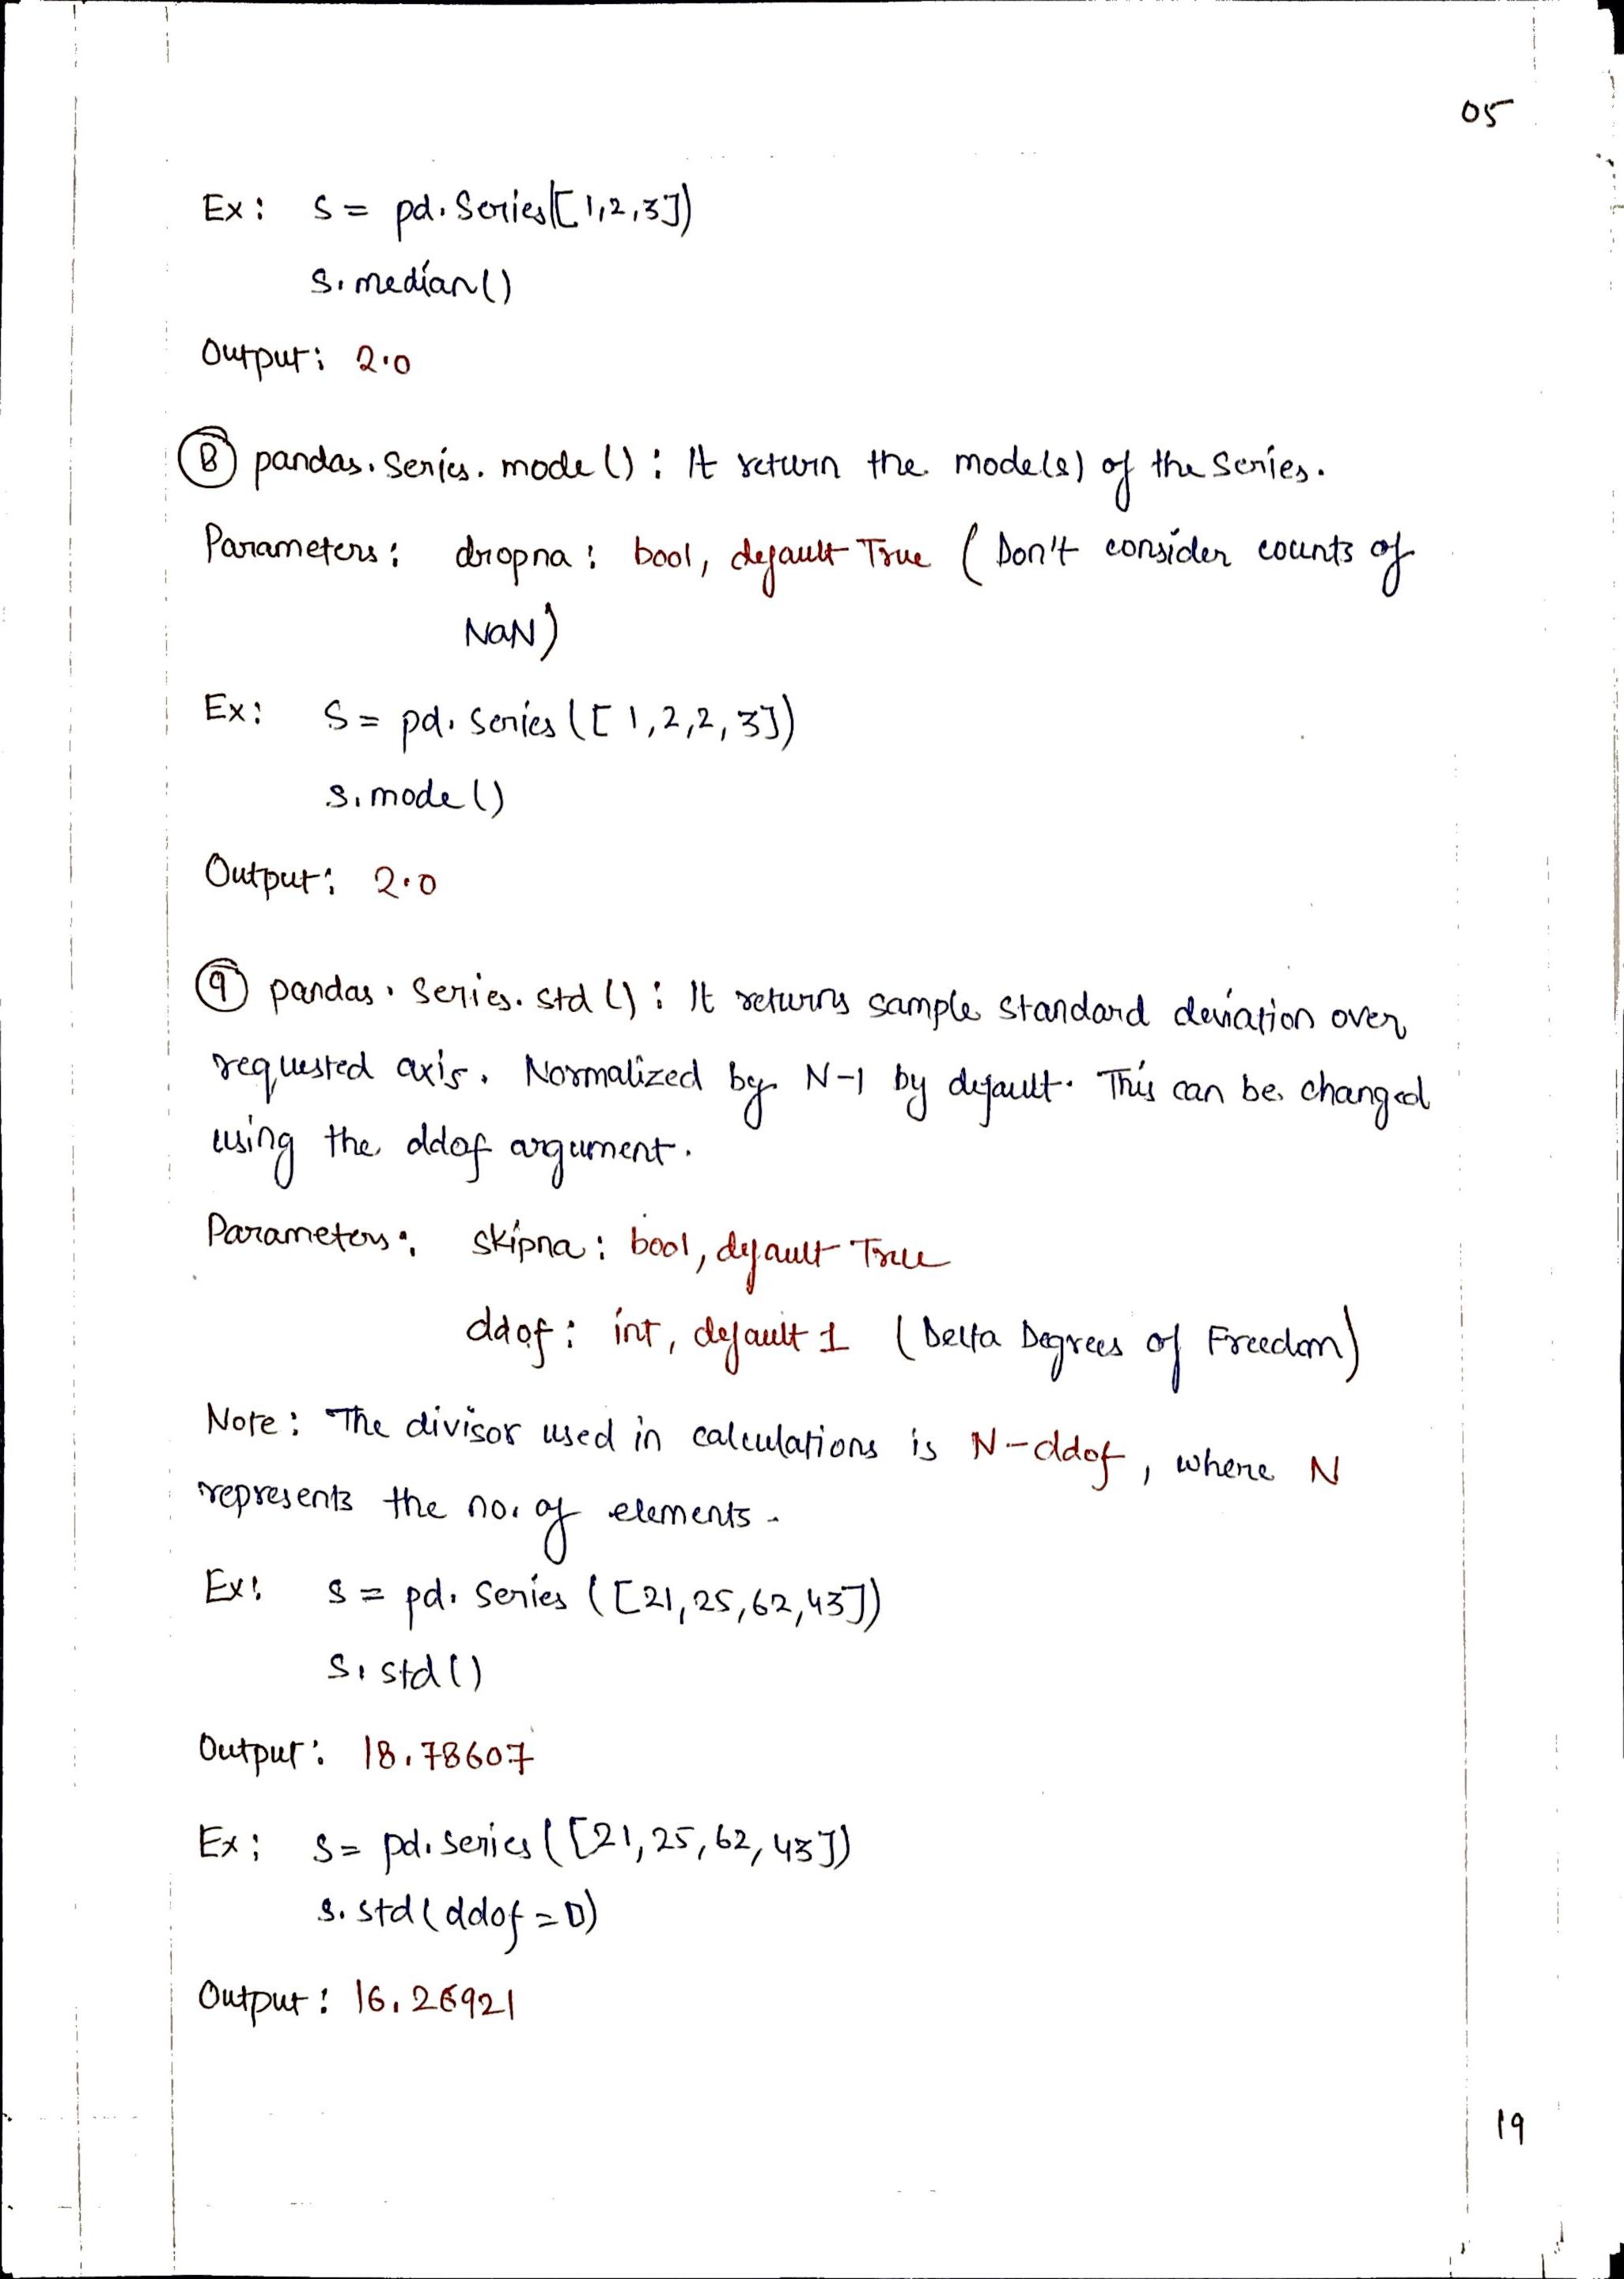 05
Ex: S = pd. Series([1,2,3])
S. median()
Output: 2.0
⑧ pandas. Series. mode(): It return the mode(s) of the Series.
Parameters: dropna: bool, default True (Don't consider counts of
NaN)
Ex: S = pd. Series([1,2,2,3])
S. mode()
Output: 2.0
⑨ pandas. Series. std(): It returns sample standard deviation over
requested axis. Normalized by N-1 by default. This can be changed
using the ddof argument.
Parameters: skipna: bool, default True
ddof: int, default 1 (Delta Degrees of Freedom)
Note: The divisor used in calculations is N-ddof, where N
represents the no. of elements.
Ex: S = pd. Series([21,25,62,43])
S. std()
Output: 18.78607
Ex: S = pd. Series([21,25,62,43])
S. std(ddof=0)
Output: 16.26921
19